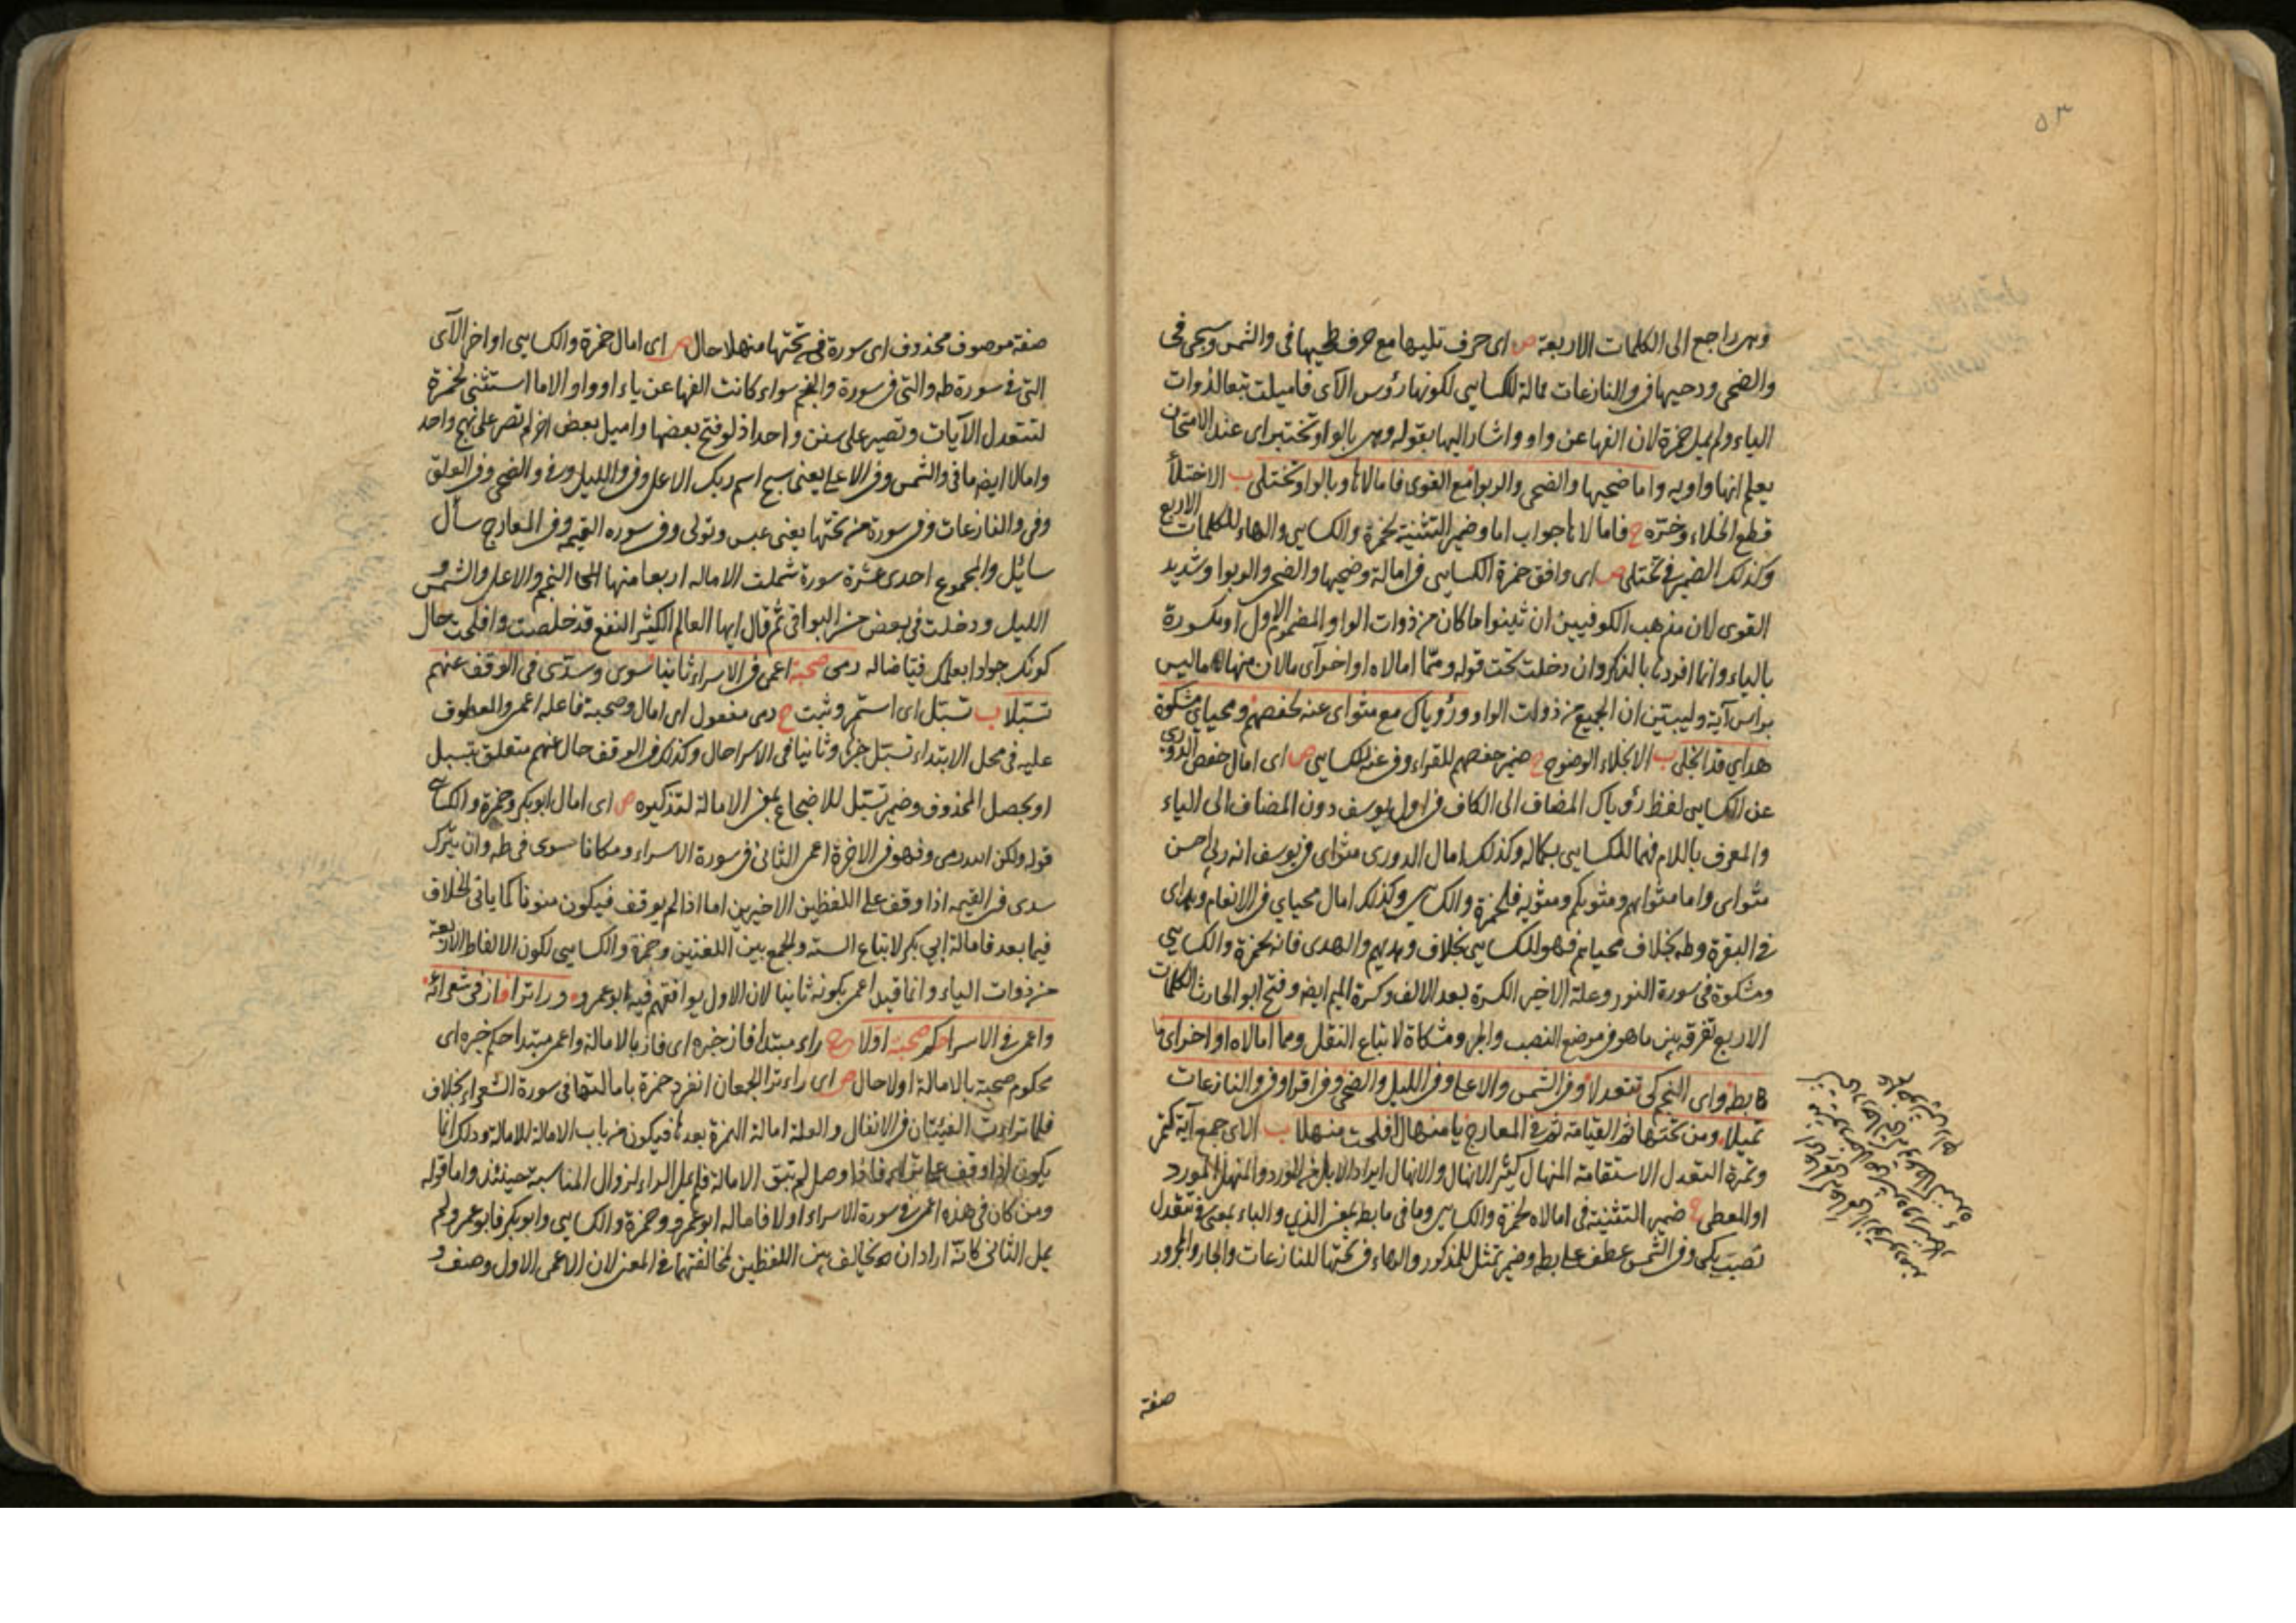 ٥٣
وهي راجع الى الكلمات الاربعة ص اى حرف تليها مع حرف طحيها فى والشمس وسجى فى
والضحى ودحيها فى والنازعات ممالة للكسايى لكونها رؤس الآى فاميلت تبعا لذوات
الياء ولم يمل حمزة لان الفها عن واو واشار اليها بقوله وهى بالواو تختبر اى عند الامتحان
يعلم انها واويه واما ضحيها والضحى والربوا مع القوى فامالاها وبالواو تختلى ب الاختلاء
قطع الخلاء وجزه ح فامالاها جواب اما وضمير التثنية لحمزة والكسايى والهاء للكلمات الاربع
وكذلك الضمير فى تختلى ص اى وافق حمزة الكسايى فى امالة وضحيها والضحى والربوا وشديد
القوى لان مذهب الكوفيين ان ثينوا ما كان من ذوات الواو المضموم الاول او مكسورة
بالياء وانما افردها بالذكر وان دخلت تحت قوله ومما امالاه اواخر آى مالان منها ما ليس
براس آية وليبين ان الجميع من ذوات الواو ورؤياك مع مثواى عنه لحفصهم ومحياي مشكوة
هداي قد انجلى ب الانجلاء الوضوح ح ضمير حفصهم للقراء وفى عنه للكسايى ص اى امال حفص الدورى
عن الكسايى لفظ رؤياك المضاف الى الكاف فى اول يوسف دون المضاف الى الياء
والمعرف باللام فهما للكسايى بكماله وكذلك امال الدورى مثواى فى يوسف انه ربي احسن
مثواى واما مثواهم ومثويكم ومثويه فلحمزة والكسايى وكذلك امال محياي فى الانعام وهداى
فى البقرة وطه بخلاف محياهم فهو للكسايى بخلاف وهديهم والهدى فانه لحمزة والكسايى
ومشكوة فى سورة النور وعلة الاخير الكسرة بعد الالف وكسرة الميم ايضا وفتح ابو الحارث الكلمات
الاربع تفرقة بين ما هو فى موضع النصب والجر ومشكاة لاتباع النقل ومما امالاه اواخر اى ما
بطه واى النجم كى تتعدلا وفى الشمس والاعلى وفى الليل والضحى وفى اقرا وفى والنازعات
تميلا ومن تحتها ثم القيامة ثم فى المعارج يا منهال افلحت منهلا ب الاى جمع آية كتمر
وتمرة التعدل الاستقامة المنهال كثير الانهال والانهال ايراد الابل فى المورد والمنهل المورد
او المعطى ح ضمير التثنية فى امالاه لحمزة والكسايى وما فى ما بطه بمعنى الذي والباء بمعنى فى تتعدل
نصب بكى وفى الشمس عطف على بطه وضمير تمثل للمذكور والهاء فى تحتها للنازعات والجار والمجرور
صفة
صفة موصوف محذوف اى سورة فى تحتها منهلا حال ص اى امال حمزة والكسايى اواخر الآى
التى فى سورة طه والتى فى سورة والنجم سواء كانت الفها عن ياء او واو الا ما استثنى لحمزة
لتتعدل الآيات وتصير على سنن واحد اذ لو فتح بعضها واميل بعض اخر لم تصر على نهج واحد
وامالا ايضا ما فى والشمس وفى الاعلى يعنى سبح اسم ربك الاعلى وفى والليل وفى والضحى وفى العلق
وفى والنازعات وفى سورة من تحتها يعنى عبس وتولى وفى سوره القيمه وفى المعارج سأل
سائل والمجموع احدى عشرة سورة شملت الاماله اربعا منها الى النجم والاعلى والشمس و
الليل ودخلت فى بعض من البواقى ثم قال ايها العالم الكثير النفع قد خلصت وافلحت حال
كونك جوادا بعلمك فيتاضاله رمى صحبة اعمى فى الاسراء ثانيا سوى وسدى فى الوقف عنهم
تسبلا ب تسبل اى استمر وثبت ح رمى مفعول اى امال وصحبة فاعله اعمى والمعطوف
عليه فى محل الابتداء تسبل خبره وثانيا فى الاسرا حال وكذلك فى الوقف حال عنهم متعلق بتسبل
او بحصل المحذوف وضمير تسبل للاضجاع بمعنى الامالة لتذكيره ص اى امال ابو بكر وحمزة والكسايى
قوله ولكن الله رمى وفهو فى الاخرة اعمى الثانى فى سورة الاسراء ومكانا سوى فى طه وان يترك
سدى فى القيمه اذا وقف على اللفظين الاخيرين اما اذا لم يوقف فيكون منونا كما ياتى الخلاف
فيما بعد فامالة ابي بكر لاتباع السنه والجمع بين اللغتين وحمزة والكسايى لكون الالفاظ الاربعة
من ذوات الياء وانما قيد اعمى بكونه ثانيا لان الاول يوافقهم فيه ابو عمرو وراء تراءا فاز فى شعرائه
واعمى فى الاسرا حكم صحبة اولا ح راء مبتدأ فاز خبره اى فاز بالامالة واعمى مبتدا حكم خبره اى
محكوم صحبة بالامالة اولا حال ص اى راء ترا الجمعان انفرد حمزة بامالتها فى سورة الشعراء بخلاف
فلما تراءت الفئتان فى الانفال والعلة امالة الهمزة بعدها فيكون من باب الامالة للامالة وذلك انما
يكون اذا وقف على تراءى فاذا وصل لم تبق الامالة فلم يمل الراء لزوال المناسبة حينئذ واما قوله
ومن كان فى هذه اعمى فى سورة الاسراء اولا فاماله ابو عمرو وحمزة والكسايى وابو بكر فابو عمرو لم
يمل الثانى كانه اراد ان يخالف بين اللفظين لمخالفتهما فى المعنى لان الاعمى الاول وصف و